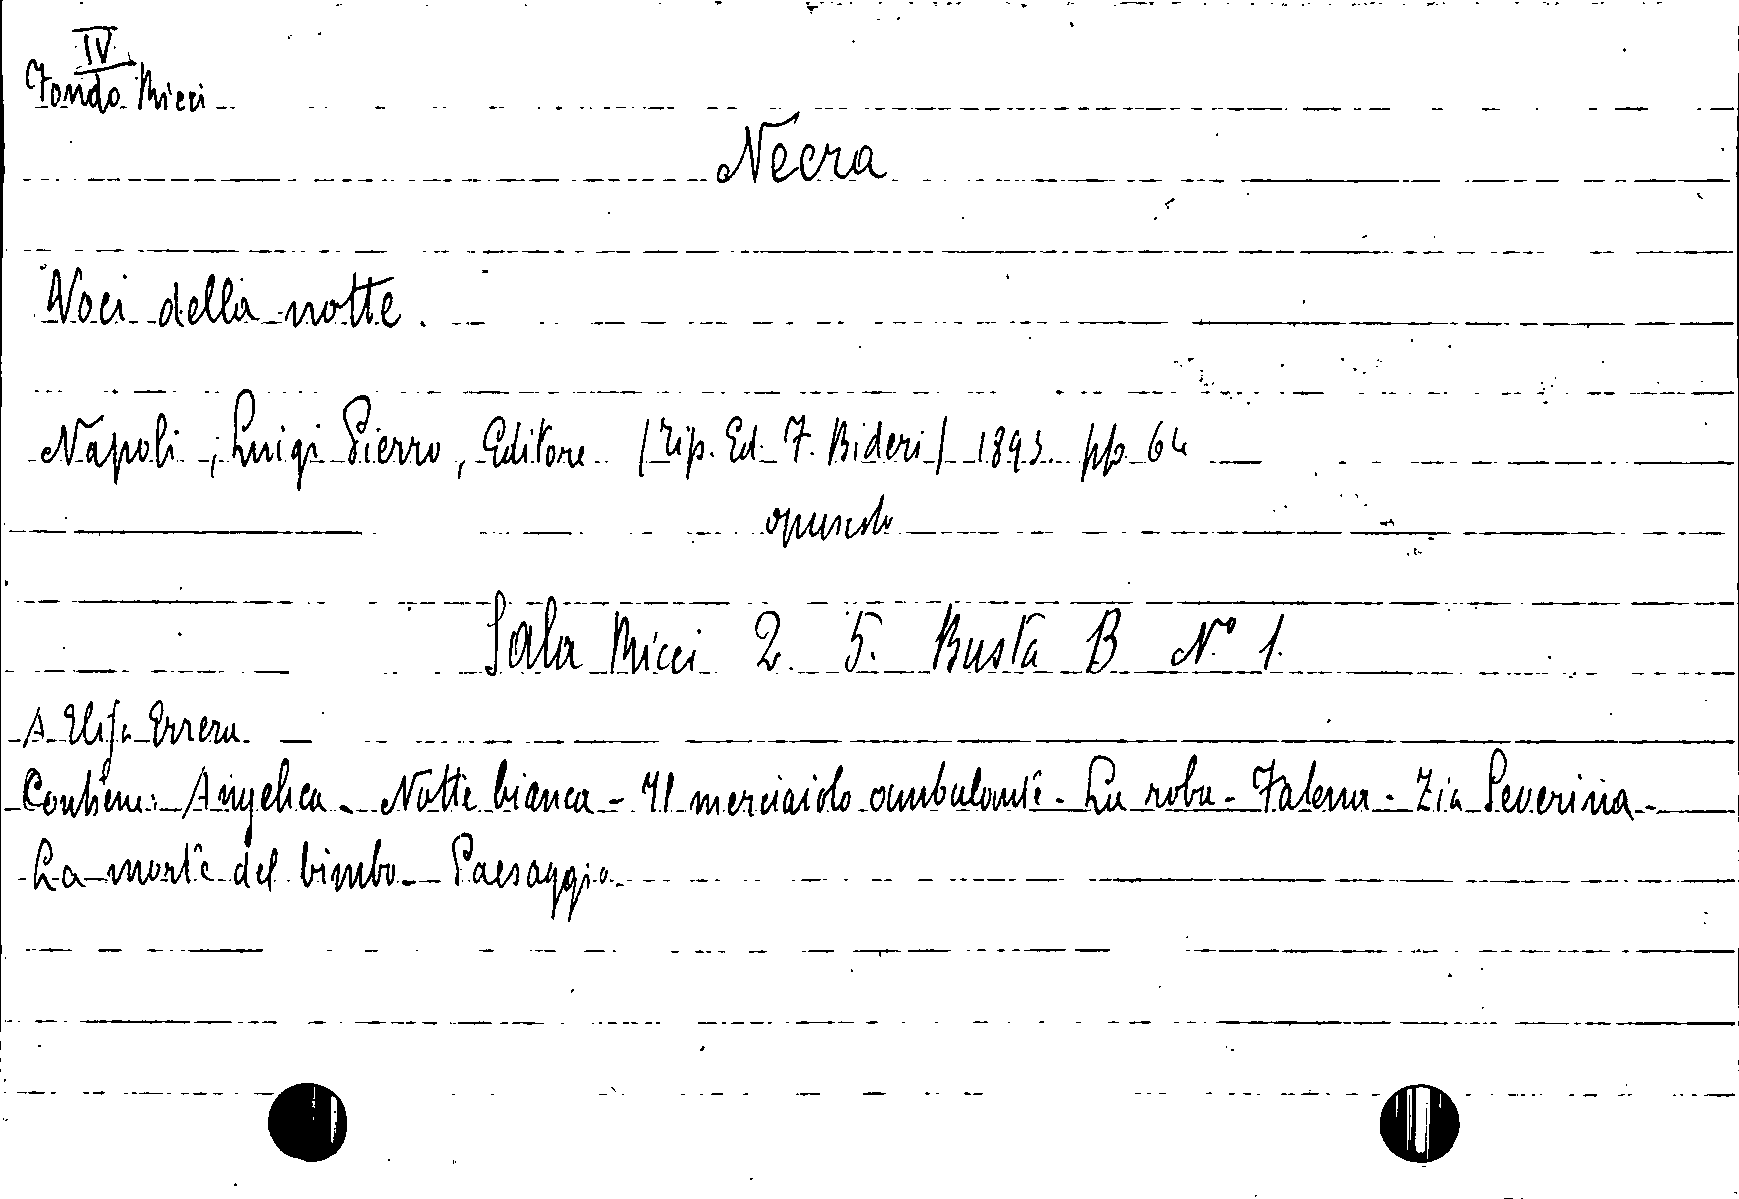 IV
Fondo Ricci
Neera
Voci della notte.
Napoli, Luigi Pierro, Editore (Tip. Ed. F. Bideri) 1893. pp. 64
opuscolo
Sala Ricci 2. 5. Busta B N° 1.
A Elisa Errera
Contiene: Angelica - Notte bianca - Il merciaiolo ambulante - La roba - Falena - Zia Severina -
La morte del bimbo - Paesaggio